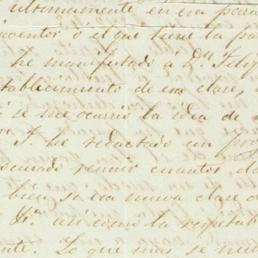 ultimamente, en esa para
inventor ó el que tiene la pa
he manifestado á Dn Felip
tablecimiento de esa clase,
se me ocurrió la idea de
he redactado un pro
curado reunir cuantos da
bien, si esa nueva clase d
así como la respetab
nte. Lo que mas se nece